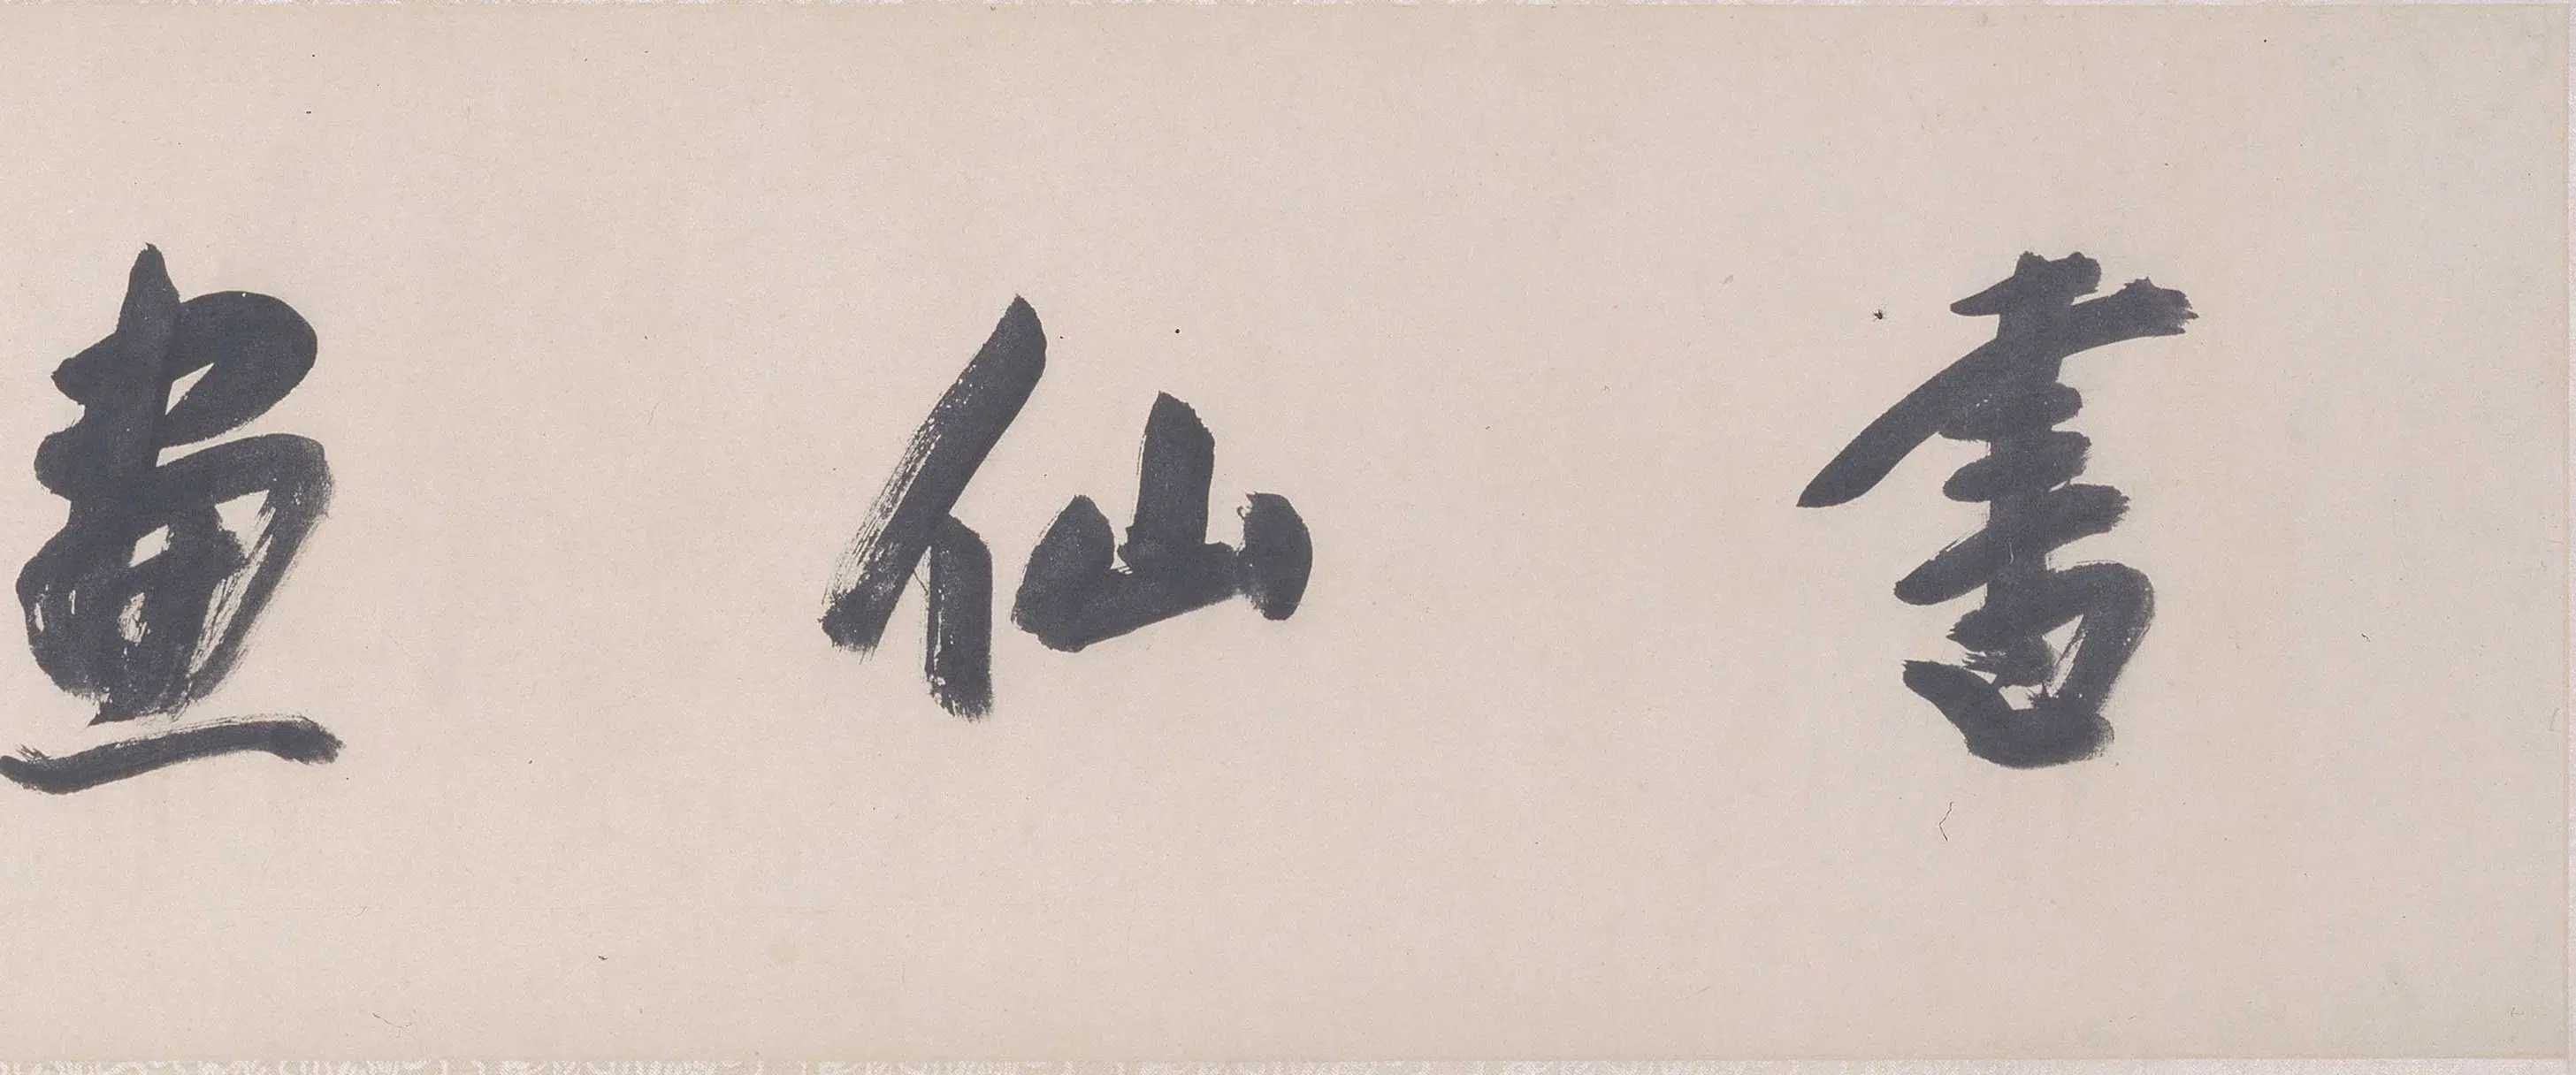 書仙畫